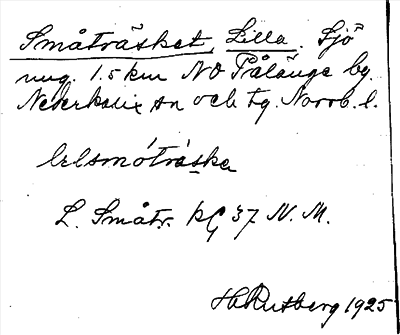 Småträsket, Lilla. Sjö
ung. 1.5 km NO Pålänge by.
Nederkalix sn och tg. Norrb. l.
lilsmótráska
L. Småtr. kG 37 N. M.
H Rutberg 1925